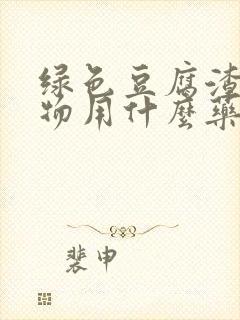 绿色豆腐渣
物用什麼藥
裴申